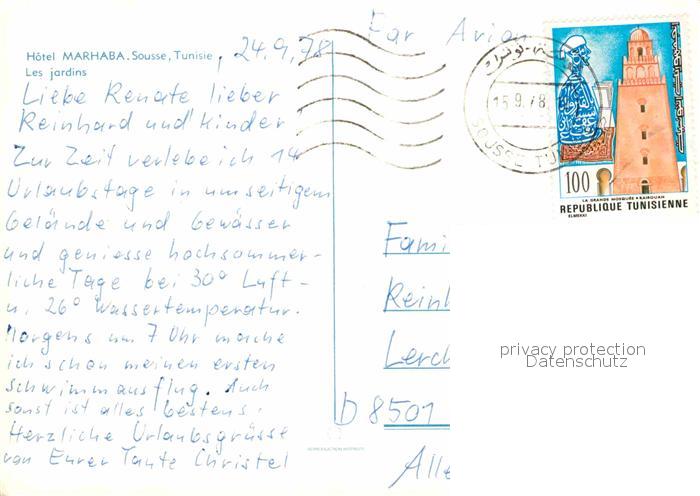 Hôtel MARHABA. Sousse, Tunisie
Les jardins
, 24.9.78
Liebe Renate lieber
Reinhard und Kinder!
Zur Zeit verlebe ich 14
Urlaubstage in umseitigem
Gelände und Gewässer
und geniesse hochsommer-
liche Tage bei 30° Luft-
u. 26° Wassertemperatur.
Morgens um 7 Uhr mache
ich schon meinen ersten
Schwimmausflug. Auch
sonst ist alles bestens.
Herzliche Urlaubsgrüsse
von Eurer Tante Christel
Par Avion
15.9.78
SOUSSE
100
LA GRANDE MOSQUÉE • KAIROUAN
REPUBLIQUE TUNISIENNE
ELMEKKI
Fami
Rein
Lerch
D 8501
Alle
privacy protection
Datenschutz